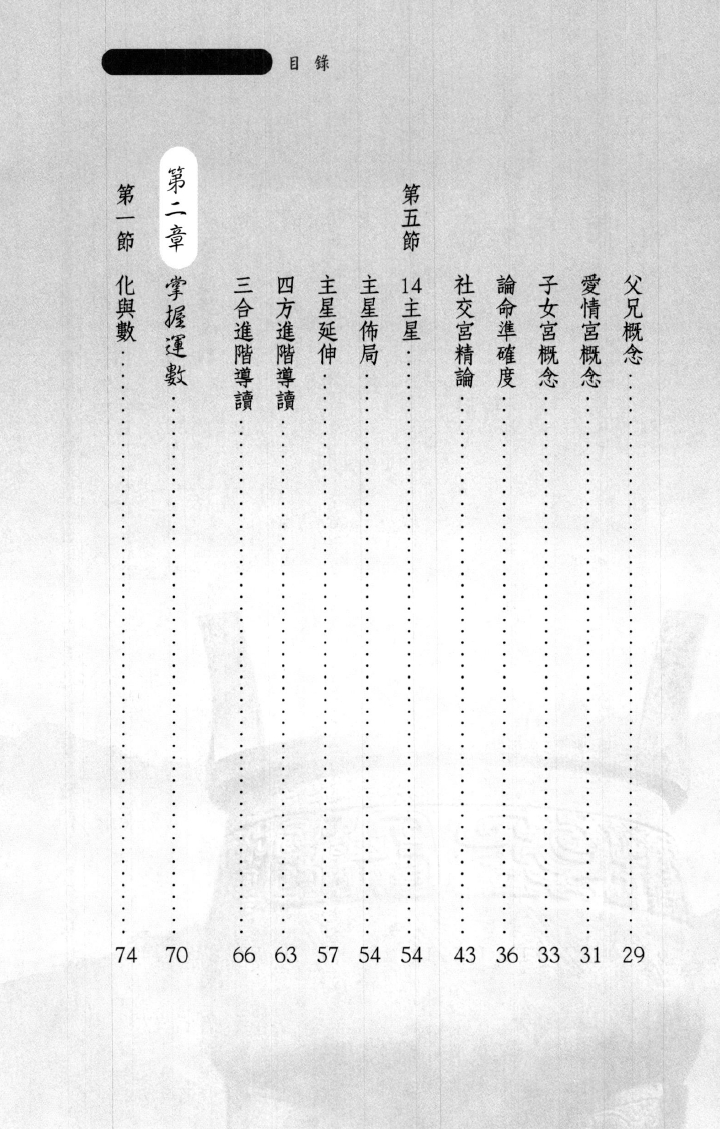 目錄
父兄概念 29
愛情宮概念 31
子女宮概念 33
論命準確度 36
社交宮精論 43
第五節 14主星 54
主星佈局 54
主星延伸 57
四方進階導讀 63
三合進階導讀 66
第二章 掌握運數 70
第一節 化與數 74